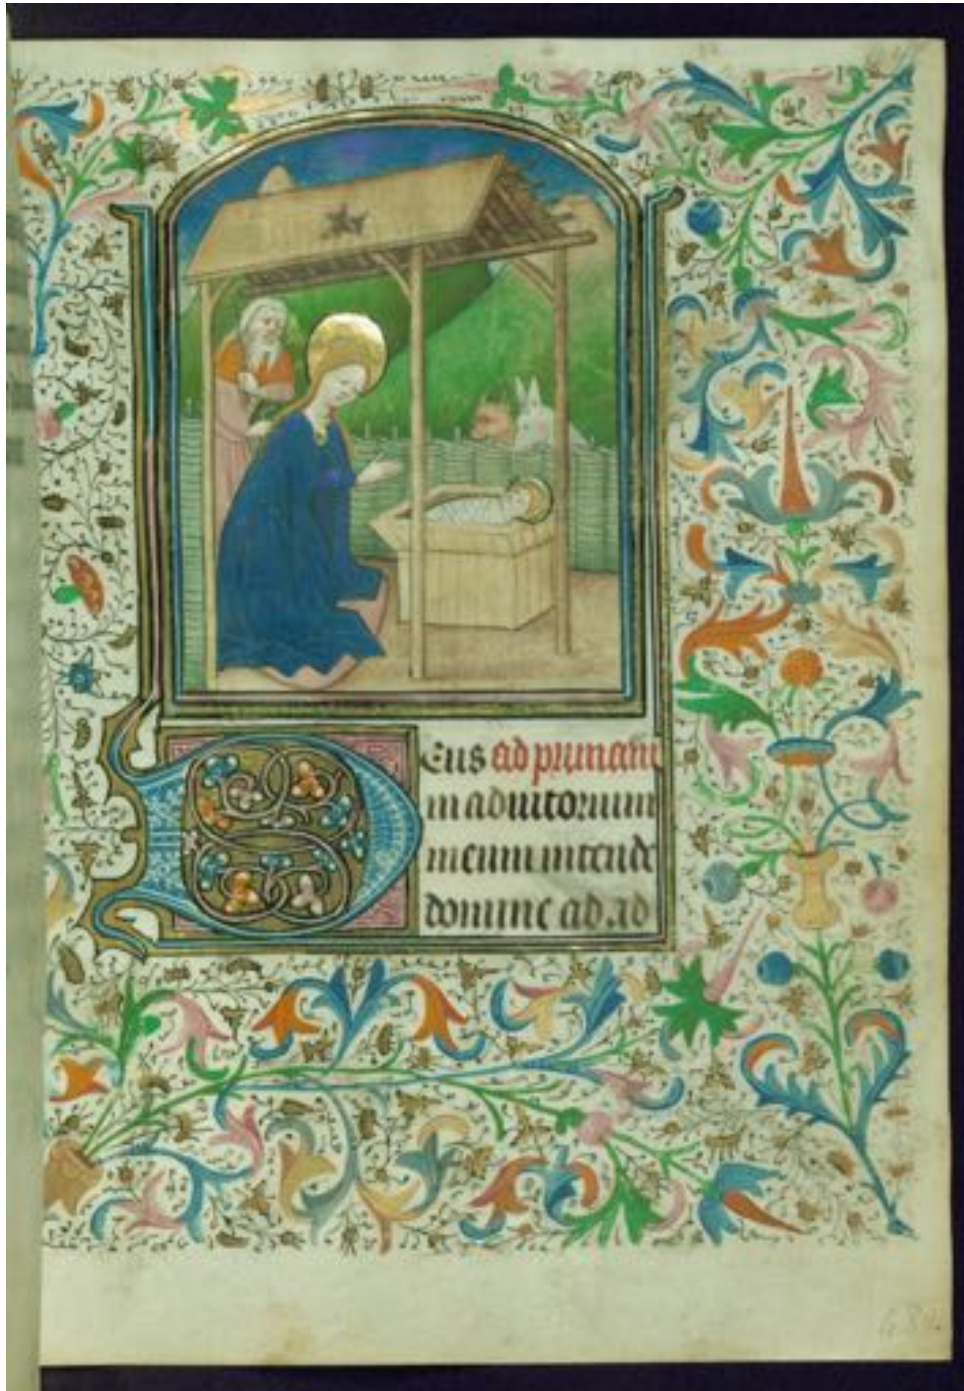 Deus ad primam
in adiutorium
meum intende
domine ad ad